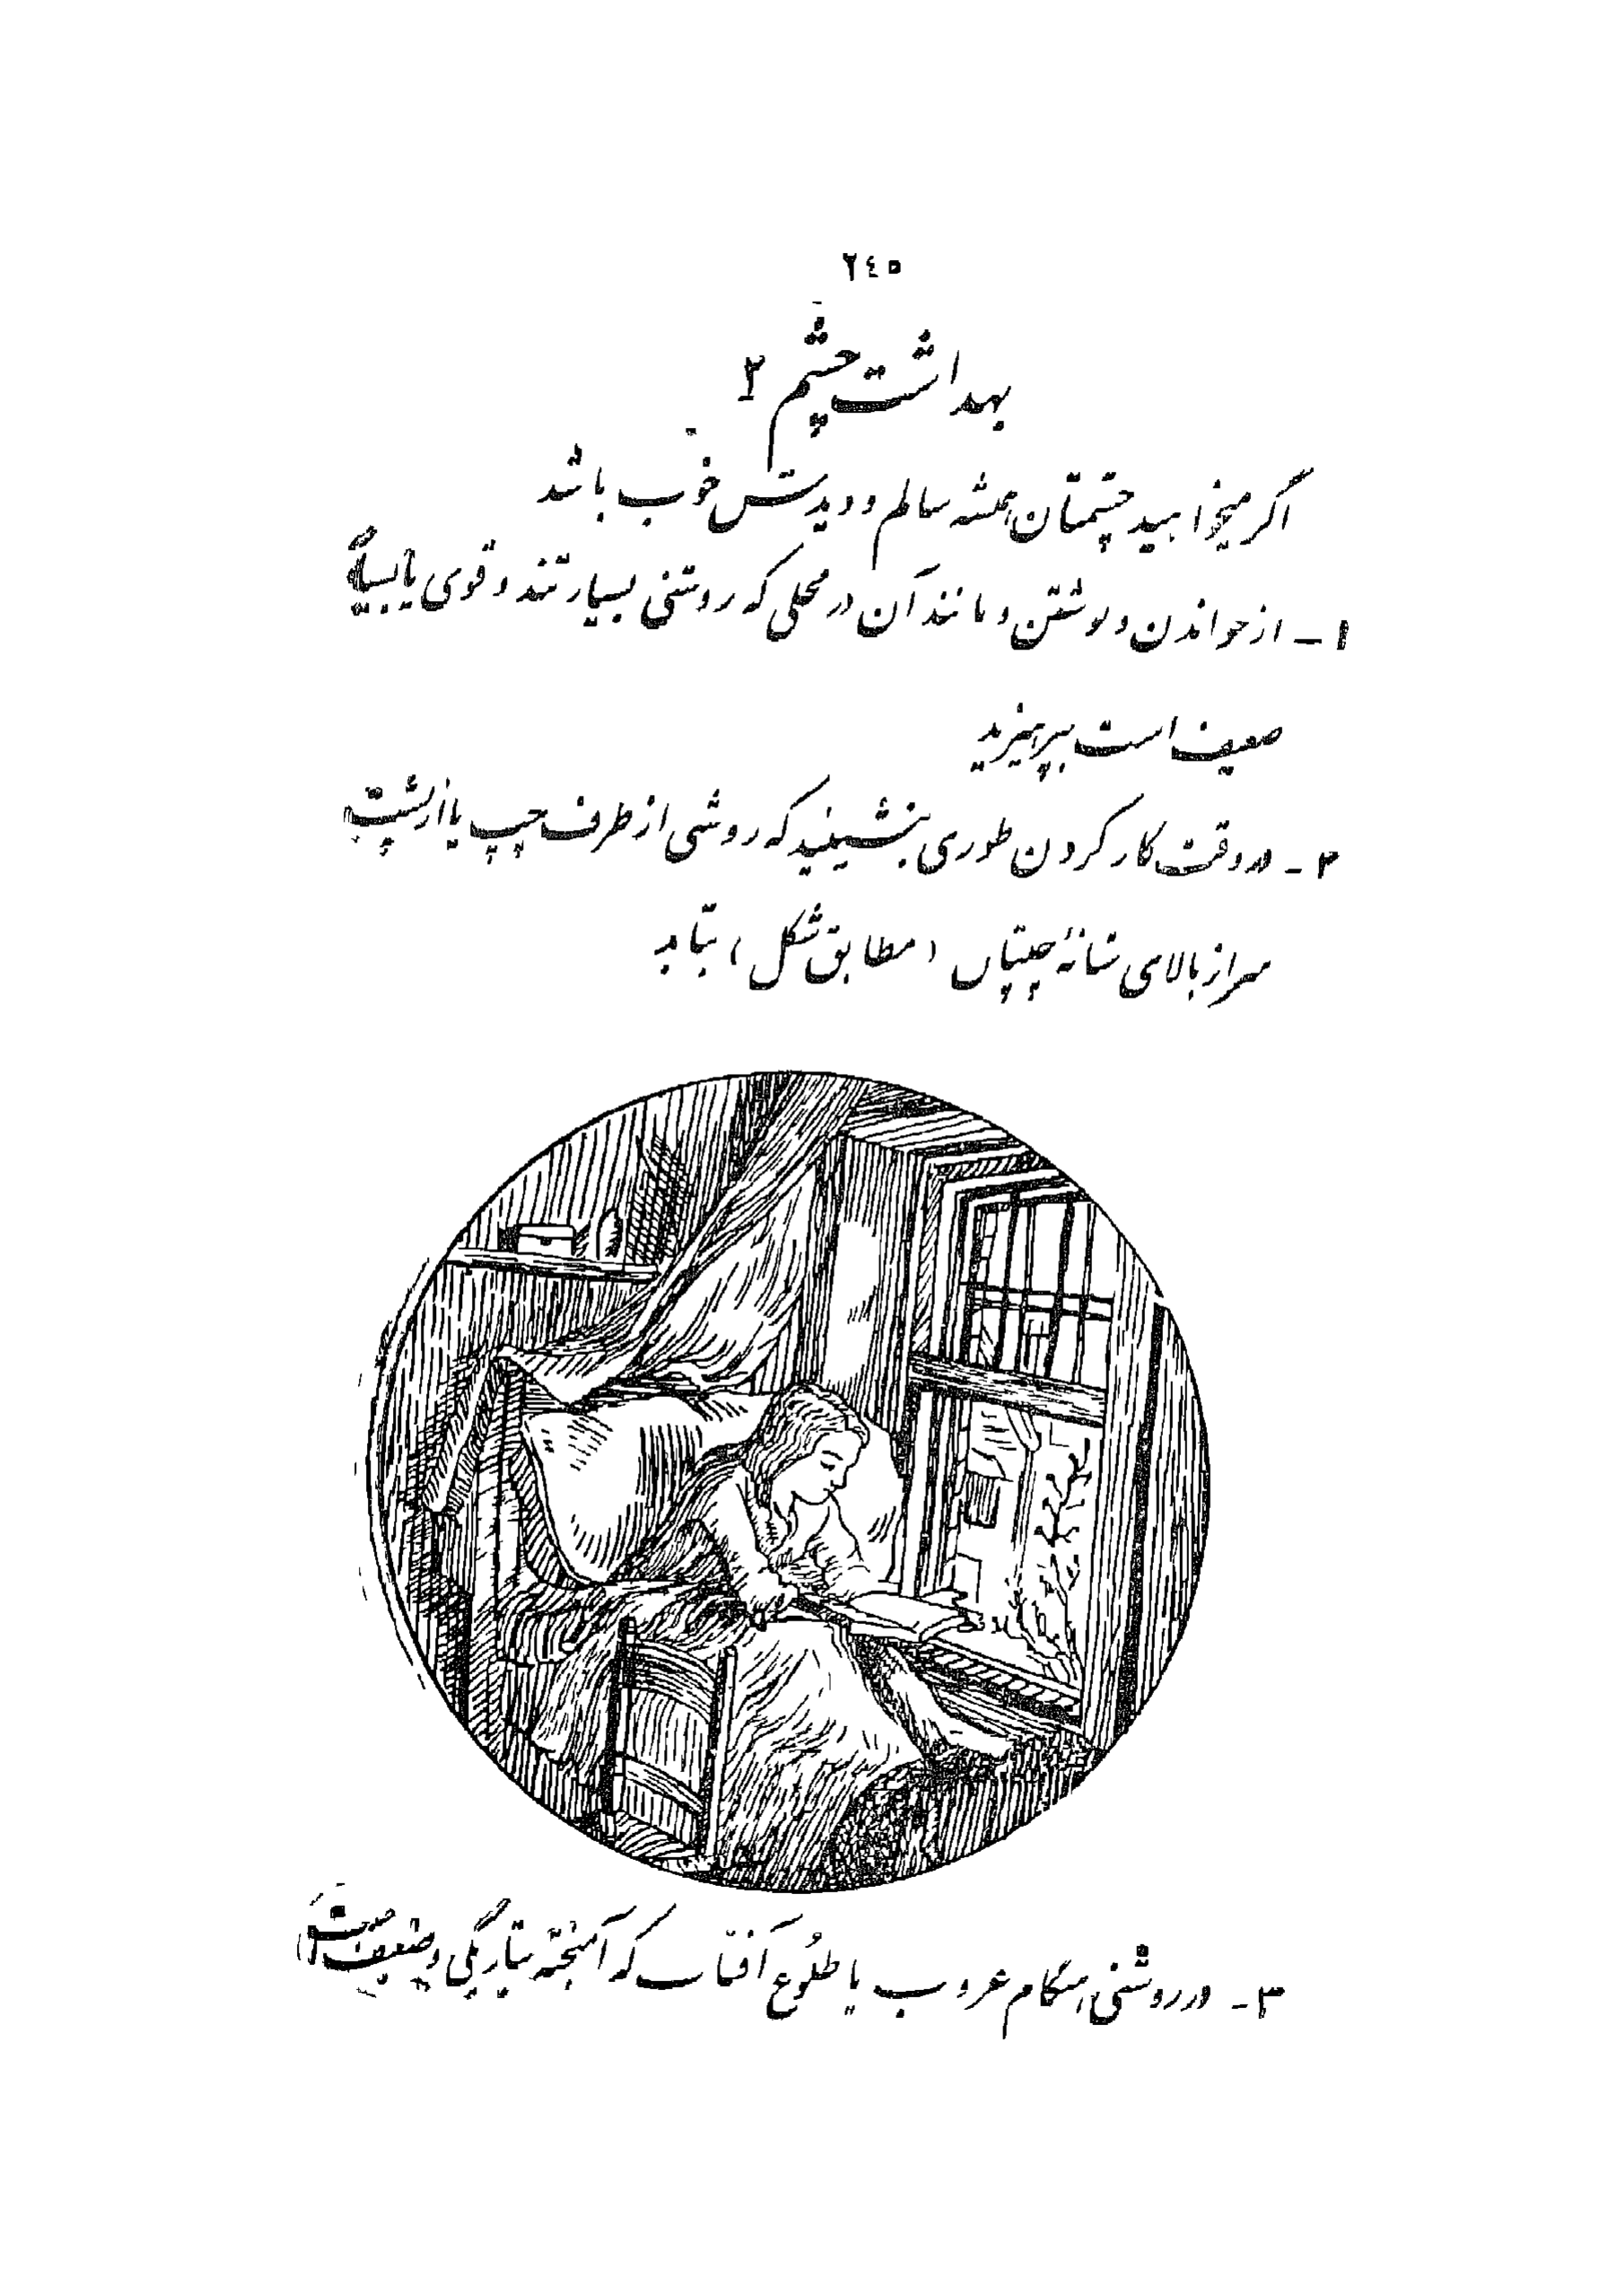 ۲٤٥
بهداشت چشم ۲
اگر میخواهید چشمتان همیشه سالم و دیدش خوب باشد
۱ - از خواندن و نوشتن و مانند آن در محلی که روشنی بسیار تند و قوی یا بسیار
ضعیف است بپرهیزید
۲ - در وقت کار کردن طوری بنشینید که روشنی از طرف چپ یا از پشت
سر از بالای شانهٔ چپتان (مطابق شکل) بتابد
۳ - در روشنی هنگام غروب یا طلوع آفتاب که آمیخته بتاریکی و ضعیف است